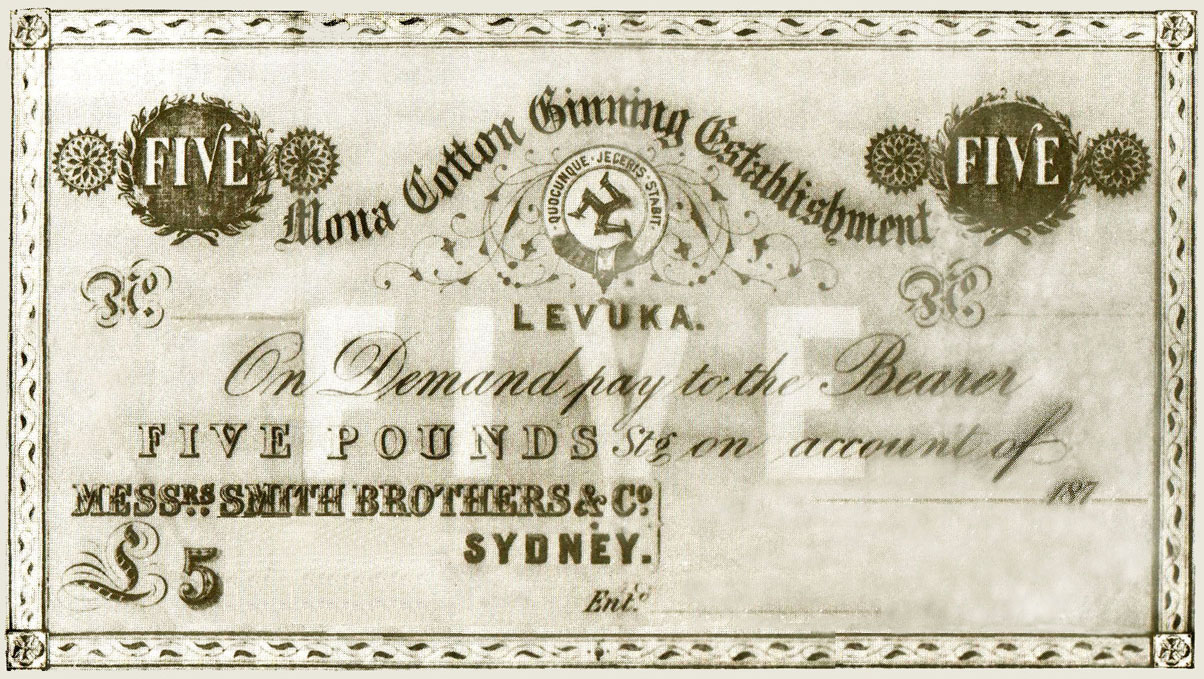 FIVE FIVE
Mona Cotton Ginning Establishment
QUOCUNQUE · JECERIS · STABIT
Nº. Nº.
LEVUKA.
FIVE
On Demand pay to the Bearer
FIVE POUNDS Stg on account of
MESSRS. SMITH BROTHERS & Cº
187
SYDNEY.
£5
Entd.